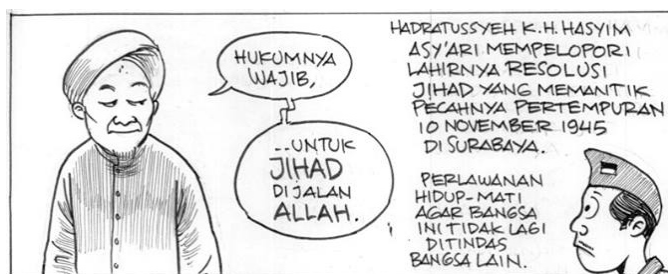 HUKUMNYA
WAJIB,
..UNTUK
JIHAD
DI JALAN
ALLAH.
HADRATUSSYEH K.H. HASYIM
ASY'ARI MEMPELOPORI
LAHIRNYA RESOLUSI
JIHAD YANG MEMANTIK
PECAHNYA PERTEMPURAN
10 NOVEMBER 1945
DI SURABAYA.
PERLAWANAN
HIDUP-MATI
AGAR BANGSA
INI TIDAK LAGI
DITINDAS
BANGSA LAIN.